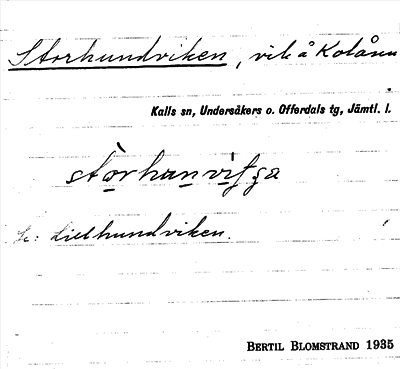 Storhundviken, vik å Kolåsen
Kalls sn, Undersåkers o. Offerdals tg, Jämtl. l.
Lillhundviken.
BERTIL BLOMSTRAND 1935